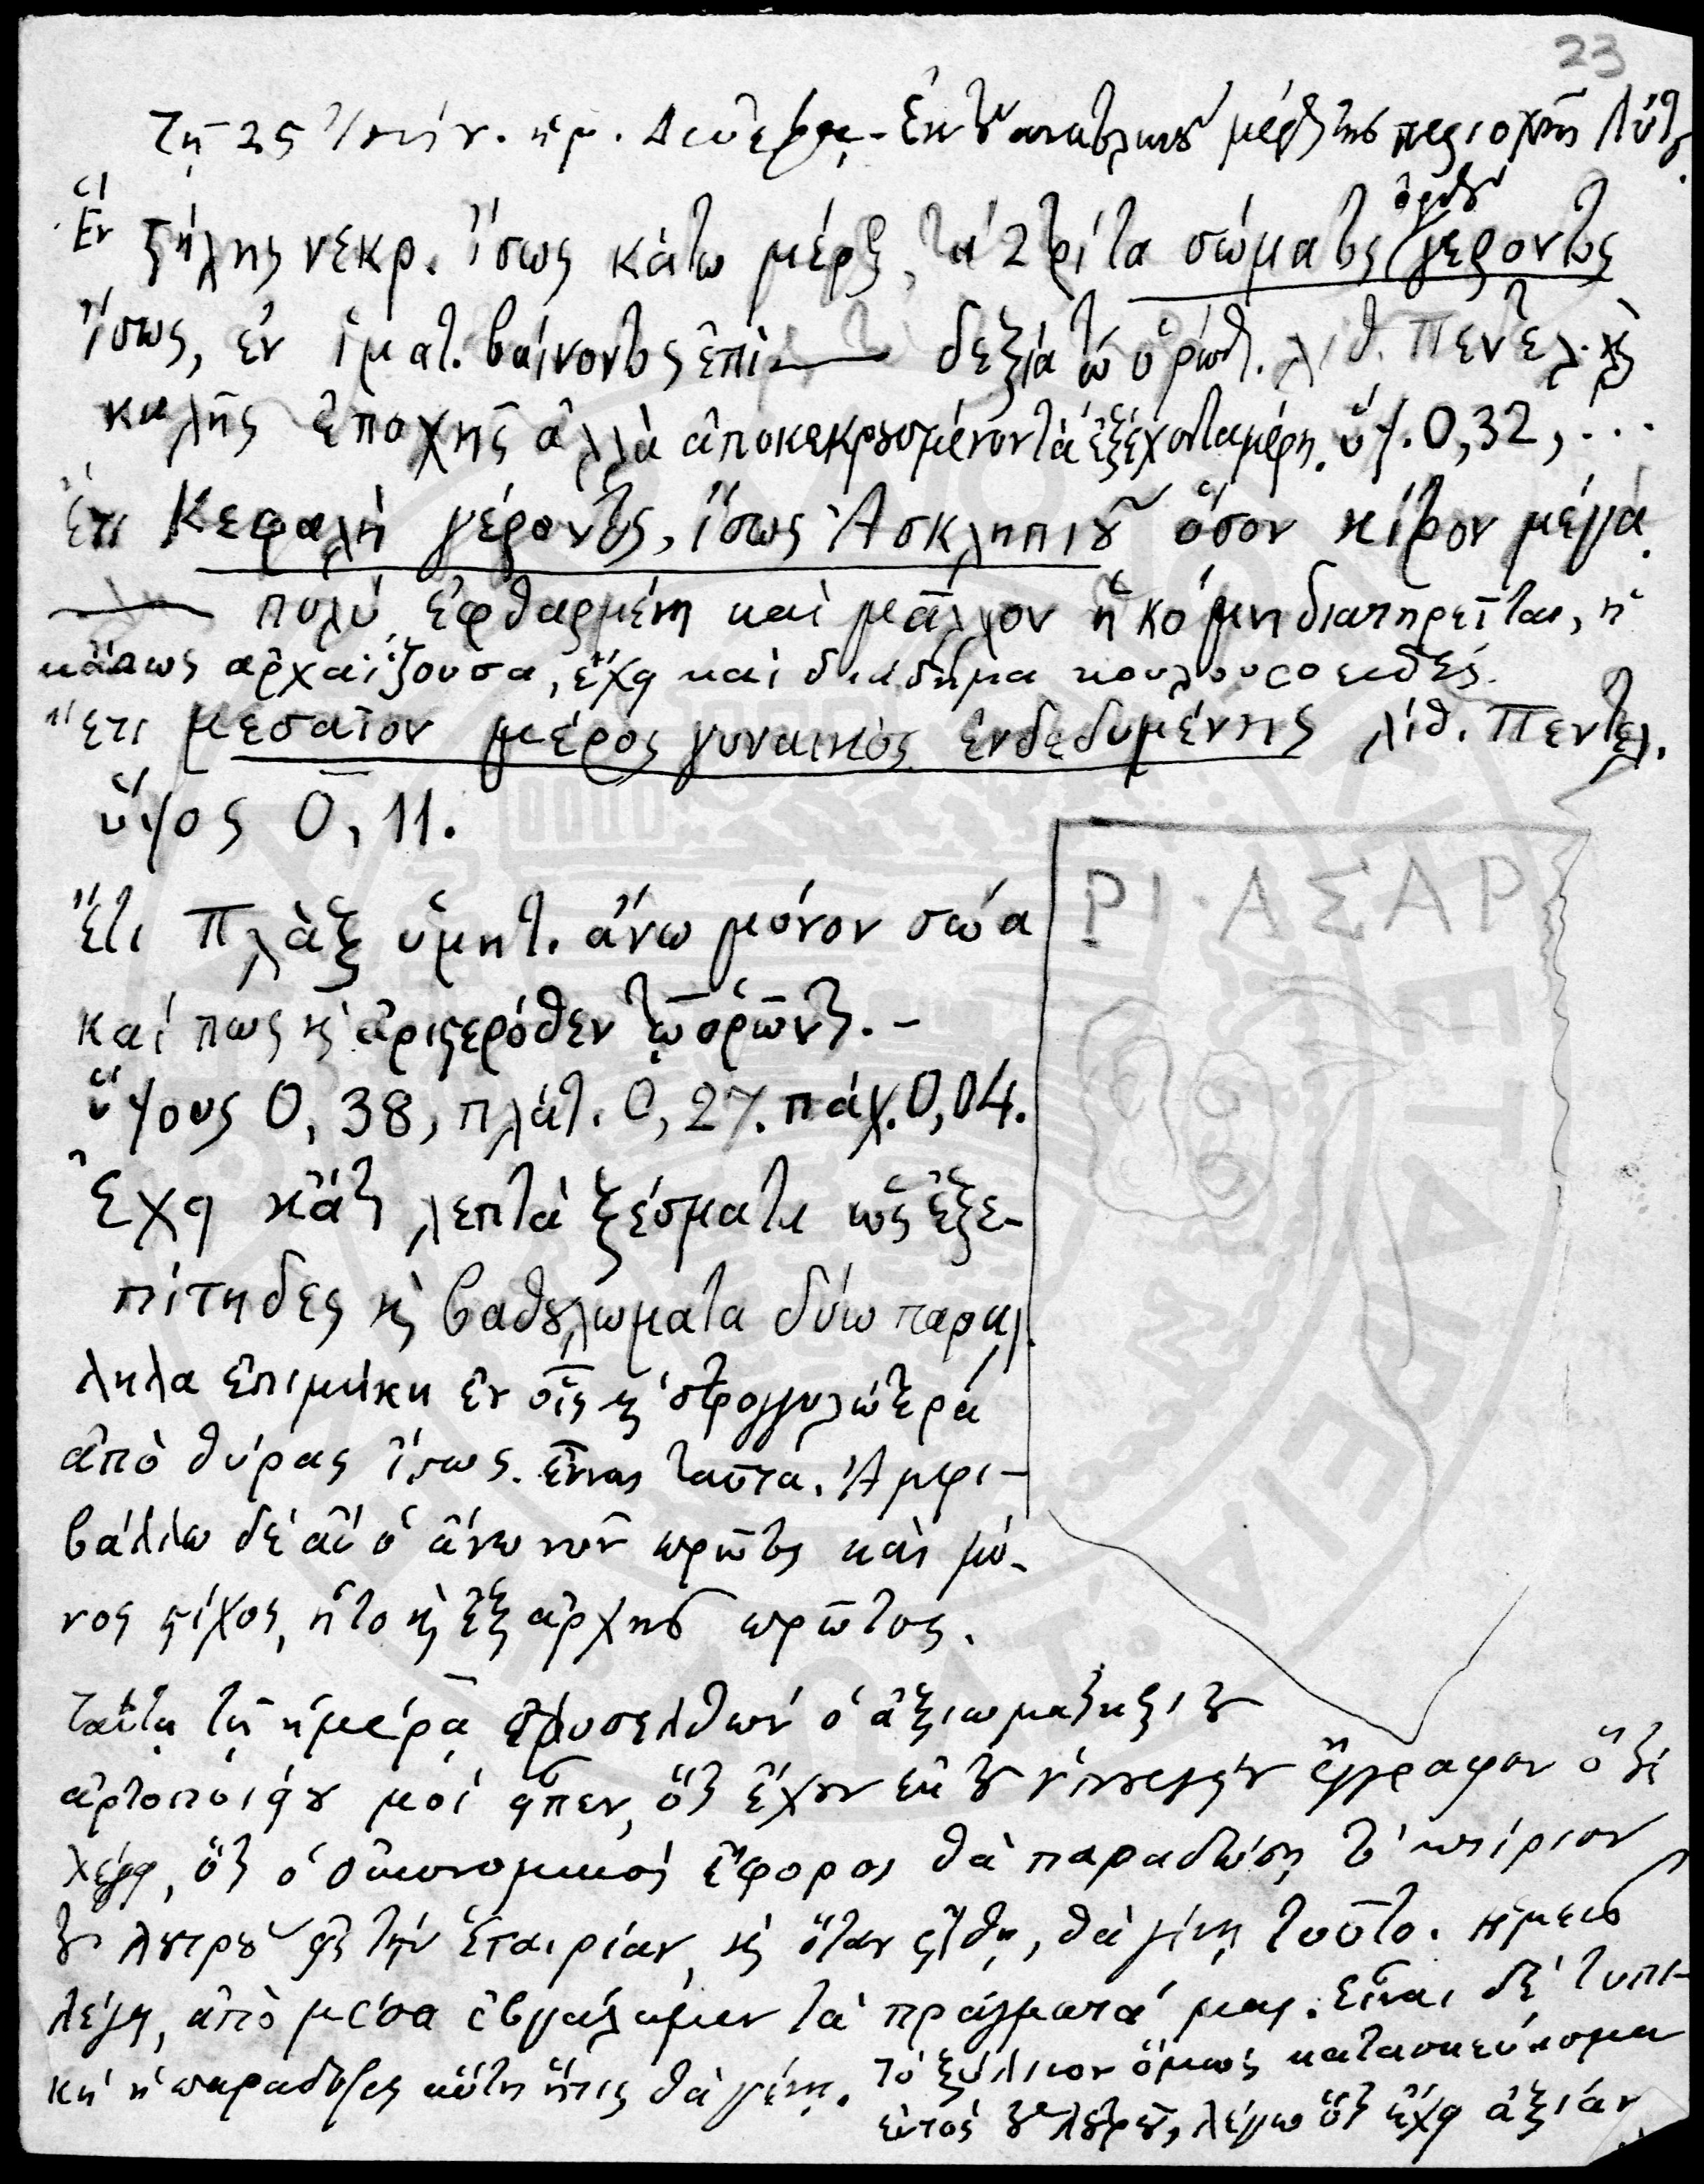 23
Τῇ 25 Ἰουν. ἡμ. Δευτέρᾳ - Ἐκ τοῦ ἀνατολικοῦ μέρους τῆς περιοχῆς
Ἓν στήλης νεκρ. ἴσως κάτω μέρος, τὰ 2 τρίτα σώματος ὀρθοῦ γέροντος
ἴσως, ἐν ἱματ. βαίνοντος ἐπὶ δεξιὰ τῷ ὁρῶντ. λίθ. Πεντελ. καὶ
καλῆς ἐποχῆς ἀλλὰ ἀποκεκρουσμένον τὰ ἐξέχοντα μέρη. ὕψ. 0,32, ...
Ἔτι Κεφαλὴ γέροντος, ἴσως Ἀσκληπιοῦ ὅσον κίτρον μέγα
πολὺ ἐφθαρμένη καὶ μᾶλλον ἡ κόμη διατηρεῖται, ἡ
κάπως ἀρχαΐζουσα, ἔχει καὶ διάδημα κουλουροειδές.
Ἔτι μεσαῖον μέρος γυναικὸς ἐνδεδυμένης λίθ. Πεντελ.
ὕψος 0,11.
Ἔτι Πλὰξ ὑμητ. ἄνω μόνον σῴα
καί πως καὶ ἀριστερόθεν τῷ ὁρῶντι. -
ὕψους 0,38, πλάτ. 0,27. πάχ. 0,04.
Ἔχει κάτι λεπτὰ ξέσματα ὡς ἐξε-
πίτηδες καὶ βαθουλώματα δύω παραλ
ληλα ἐπιμήκη ἐν οἷς καὶ στρογγυλώτερα
ἀπὸ θύρας ἴσως εἶναι ταῦτα. Ἀμφι-
βάλλω δὲ ἂν ὁ ἄνω νῦν πρῶτος καὶ μό-
νος στίχος, ἦτο καὶ ἐξ ἀρχῆς πρῶτος.
ΡΙ·ΑΣΑΡ
Ταύτῃ τῇ ἡμέρᾳ προσελθὼν ὁ ἀξιωματικὸς τοῦ
ἀρτοποιείου μοὶ εἶπεν, ὅτι ἔχουν ἐκ τοῦ ὑπουργείου ἔγγραφον ὅτι
λέγει, ὅτι ὁ οἰκονομικὸς ἔφορος θὰ παραδώσῃ τὸ κτίριον
τοῦ λουτροῦ εἰς τὴν Ἑταιρίαν καὶ ὅταν ἔλθῃ, θὰ γίνῃ τοῦτο. ἡμεῖς
λέγει, ἀπὸ μέσα ἐβγάλαμεν τὰ πράγματά μας. εἶναι δὲ τυπι-
κὴ ἡ παράδοσις αὕτη ἥτις θὰ γίνῃ. Τὸ ξύλινον ὅμως κατασκεύασμα
ἐντὸς τοῦ λουτροῦ, λέγω ὅτι ἔχει ἀξίαν